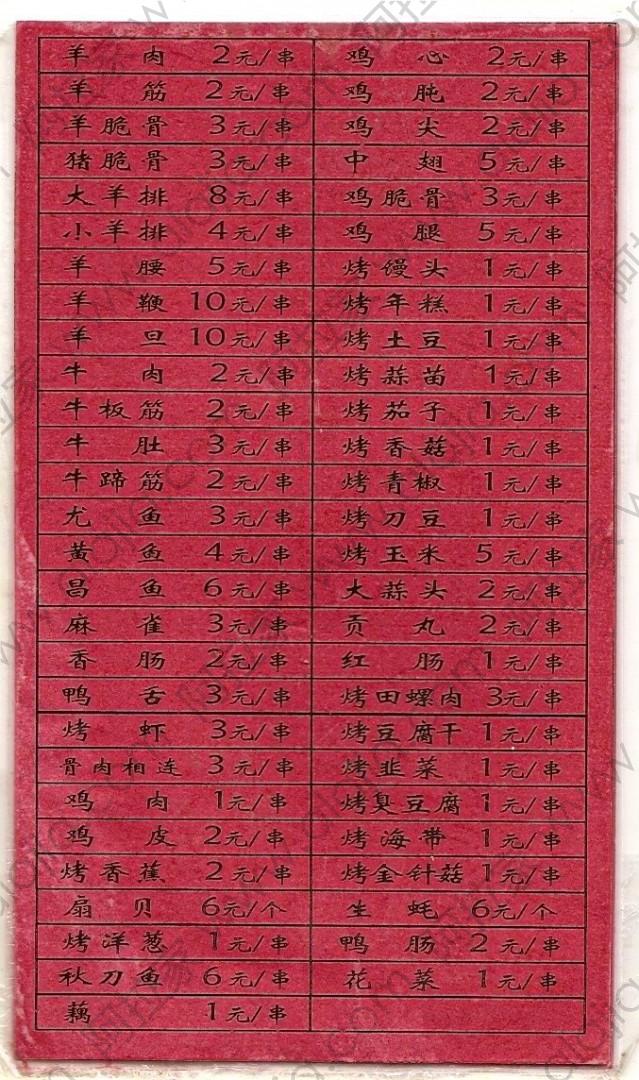 羊肉 2元/串 鸡心 2元/串
羊筋 2元/串 鸡肫 2元/串
羊脆骨 3元/串 鸡尖 2元/串
猪脆骨 3元/串 中翅 5元/串
大羊排 8元/串 鸡脆骨 3元/串
小羊排 4元/串 鸡腿 5元/串
羊腰 5元/串 烤馒头 1元/串
羊鞭 10元/串 烤年糕 1元/串
羊旦 10元/串 烤土豆 1元/串
牛肉 2元/串 烤蒜苗 1元/串
牛板筋 2元/串 烤茄子 1元/串
牛肚 3元/串 烤香菇 1元/串
牛蹄筋 2元/串 烤青椒 1元/串
尤鱼 3元/串 烤刀豆 1元/串
黄鱼 4元/串 烤玉米 5元/串
昌鱼 6元/串 大蒜头 2元/串
麻雀 3元/串 贡丸 2元/串
香肠 2元/串 红肠 1元/串
鸭舌 3元/串 烤田螺肉 3元/串
烤虾 3元/串 烤豆腐干 1元/串
骨肉相连 3元/串 烤韭菜 1元/串
鸡肉 1元/串 烤臭豆腐 1元/串
鸡皮 2元/串 烤海带 1元/串
烤香蕉 2元/串 烤金针菇 1元/串
扇贝 6元/个 生蚝 6元/个
烤洋葱 1元/串 鸭肠 2元/串
秋刀鱼 6元/串 花菜 1元/串
藕 1元/串